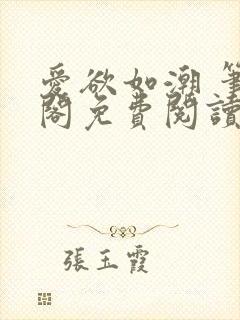 愛欲如潮 筆
閣免費閱讀
張玉霞